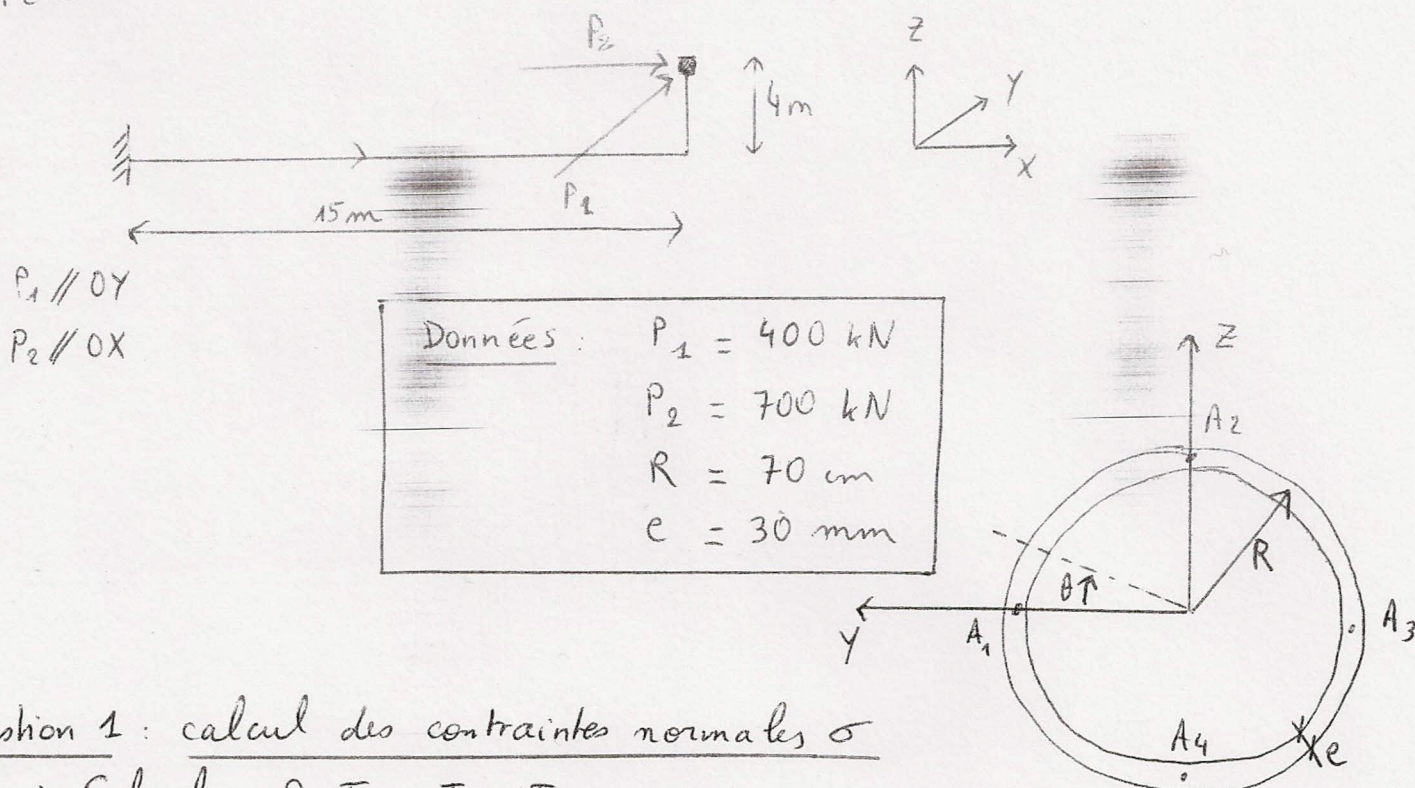 P₂
Z
4m
Y
X
15m
P₁
P₁ // OY
P₂ // OX
Données : P₁ = 400 kN
P₂ = 700 kN
R = 70 cm
e = 30 mm
Z
A₂
R
θ
Y
A₁
A₃
A₄
e
stion 1 : calcul des contraintes normales σ